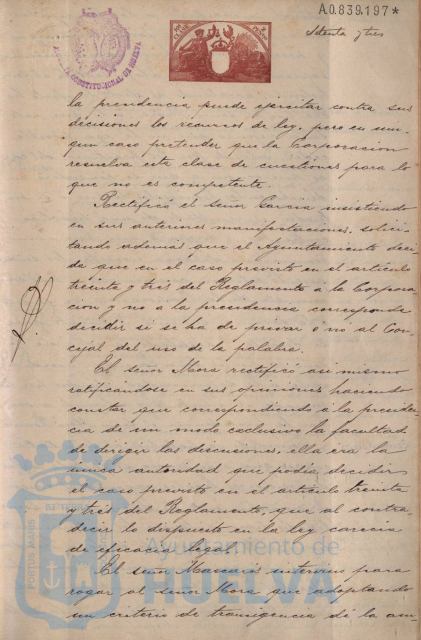 A.0.839.197*
Setenta y tres
ALCALDIA CONSTITUCIONAL DE HUELVA
la presidencia puede ejercitar contra sus
decisiones los recursos de ley, pero en nin-
gun caso pretender que la Corporacion
resuelva esta clase de cuestiones para lo
que no es competente.
Rectificó el señor Garcia insistiendo
en sus anteriores manifestaciones, solici-
tando además que el Ayuntamiento deci-
da que en el caso previsto en el artículo
treinta y tres del Reglamento á la Corpora-
cion y no á la presidencia corresponde
decidir si se ha de privar ó nó al Con-
cejal del uso de la palabra.
El señor Mora rectificó asi mismo
ratificandose en sus opiniones haciendo
constar que correspondiendo á la presiden-
cia de un modo exclusivo la facultad
de dirigir las discusiones, ella era la
única autoridad que podia decidir
el caso previsto en el artículo treinta
y tres del Reglamento, que al contra-
decir lo dispuesto en la ley carecia
de eficacia legal.
El señor Mascarós intervino para
rogar al señor Mora que adoptando
un criterio de transigencia dé la am-
PORTUS MARIS
ET TERRÆ
Ayuntamiento de
HUELVA